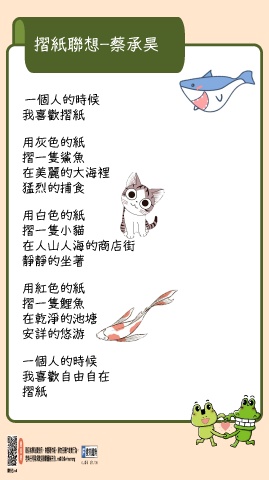 摺紙聯想-蔡承昊
一個人的時候
我喜歡摺紙
用灰色的紙
摺一隻鯊魚
在美麗的大海裡
猛烈的捕食
用白色的紙
摺一隻小貓
在人山人海的商店街
靜靜的坐著
用紅色的紙
摺一隻鯉魚
在乾淨的池塘
安詳的悠游
一個人的時候
我喜歡自由自在
摺紙